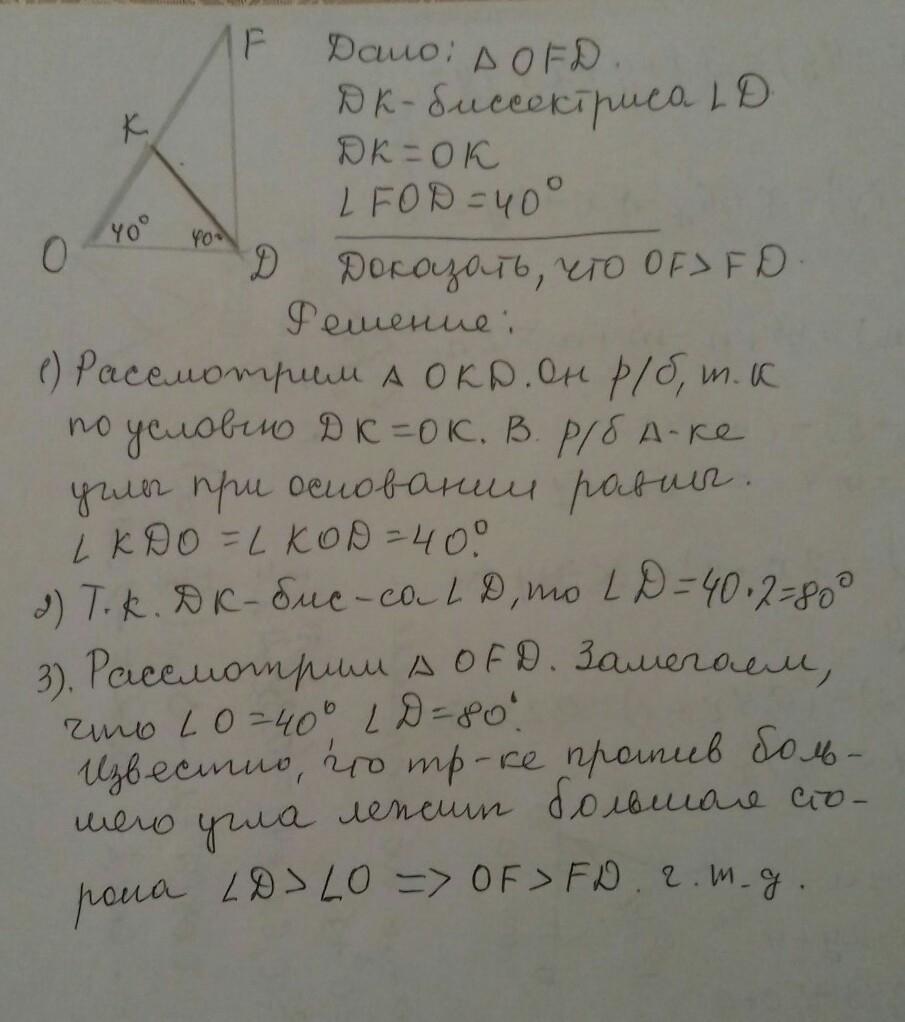 F
K
O
D
40°
40°
Дано: Δ OFD.
DK-биссектриса ∠D
DK=OK
∠FOD=40°
Доказать, что OF>FD.
Решение:
1) Рассмотрим Δ OKD. Он р/б, т.к
по условию DK=OK. В р/б Δ-ке
углы при основании равны.
∠KDO=∠KOD=40°.
2) Т.к. DK-бис-са ∠D, то ∠D=40·2=80°
3). Рассмотрим Δ OFD. Замечаем,
что ∠O=40°, ∠D=80°.
Известно, что тр-ке против боль-
шего угла лежит большая сто-
рона ∠D>∠O => OF>FD. ч.т.д.